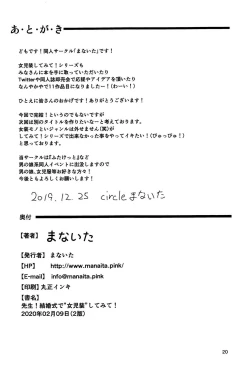 あ・と・が・き
どもです！同人サークル「まないた」です！
女児装してみて！シリーズも
みなさんに本を手に取っていただいたり
Twitterや同人誌即売会で応援やアイデアを頂いたり
なんやかやで11作品目になりましたー！(わーい！)
ひとえに皆さんのおかげです！ありがとうございます！
今回で完結！というのでもないですが
次回は別のタイトルを作りたいなーと考えております。
女装モノというジャンルは外せません(笑)が
してみて！シリーズで出来なかった事をやってイキたい！(ぴゅっぴゅ！)
と思っております。
当サークルは『ふたけっと』など
男の娘系同人イベントに出没しますので
男の娘、女児服等お好きな方々！
今後ともよろしくお願いします！
2019.12.25 circleまないた
奥付
【著者】 まないた
【発行者】 まないた
【HP】 http://www.manaita.pink/
【E-mail】 info@manaita.pink
【印刷】 丸正インキ
【書名】
先生！結婚式で"女児装"してみて！
2020年02月09日(2版)
20